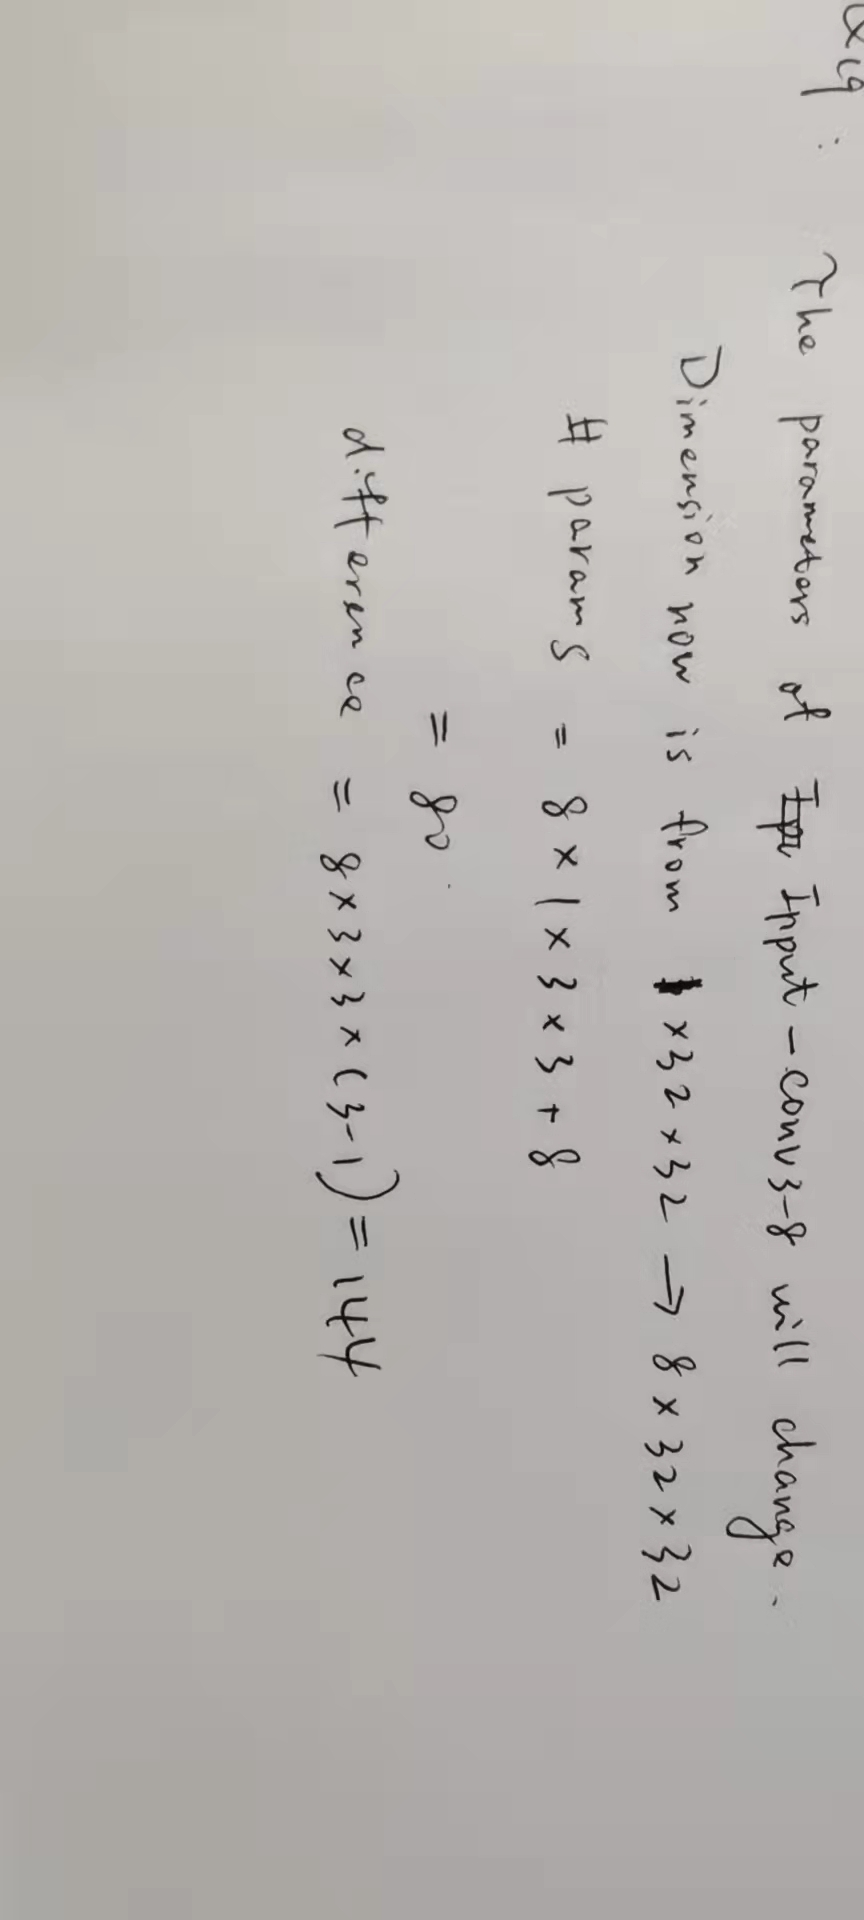 Q19: The parameters of Input-conv3-8 will change.
Dimension now is from 1×32×32 → 8×32×32
# params = 8×1×3×3+8
= 80.
difference = 8×3×3×(3-1)=144